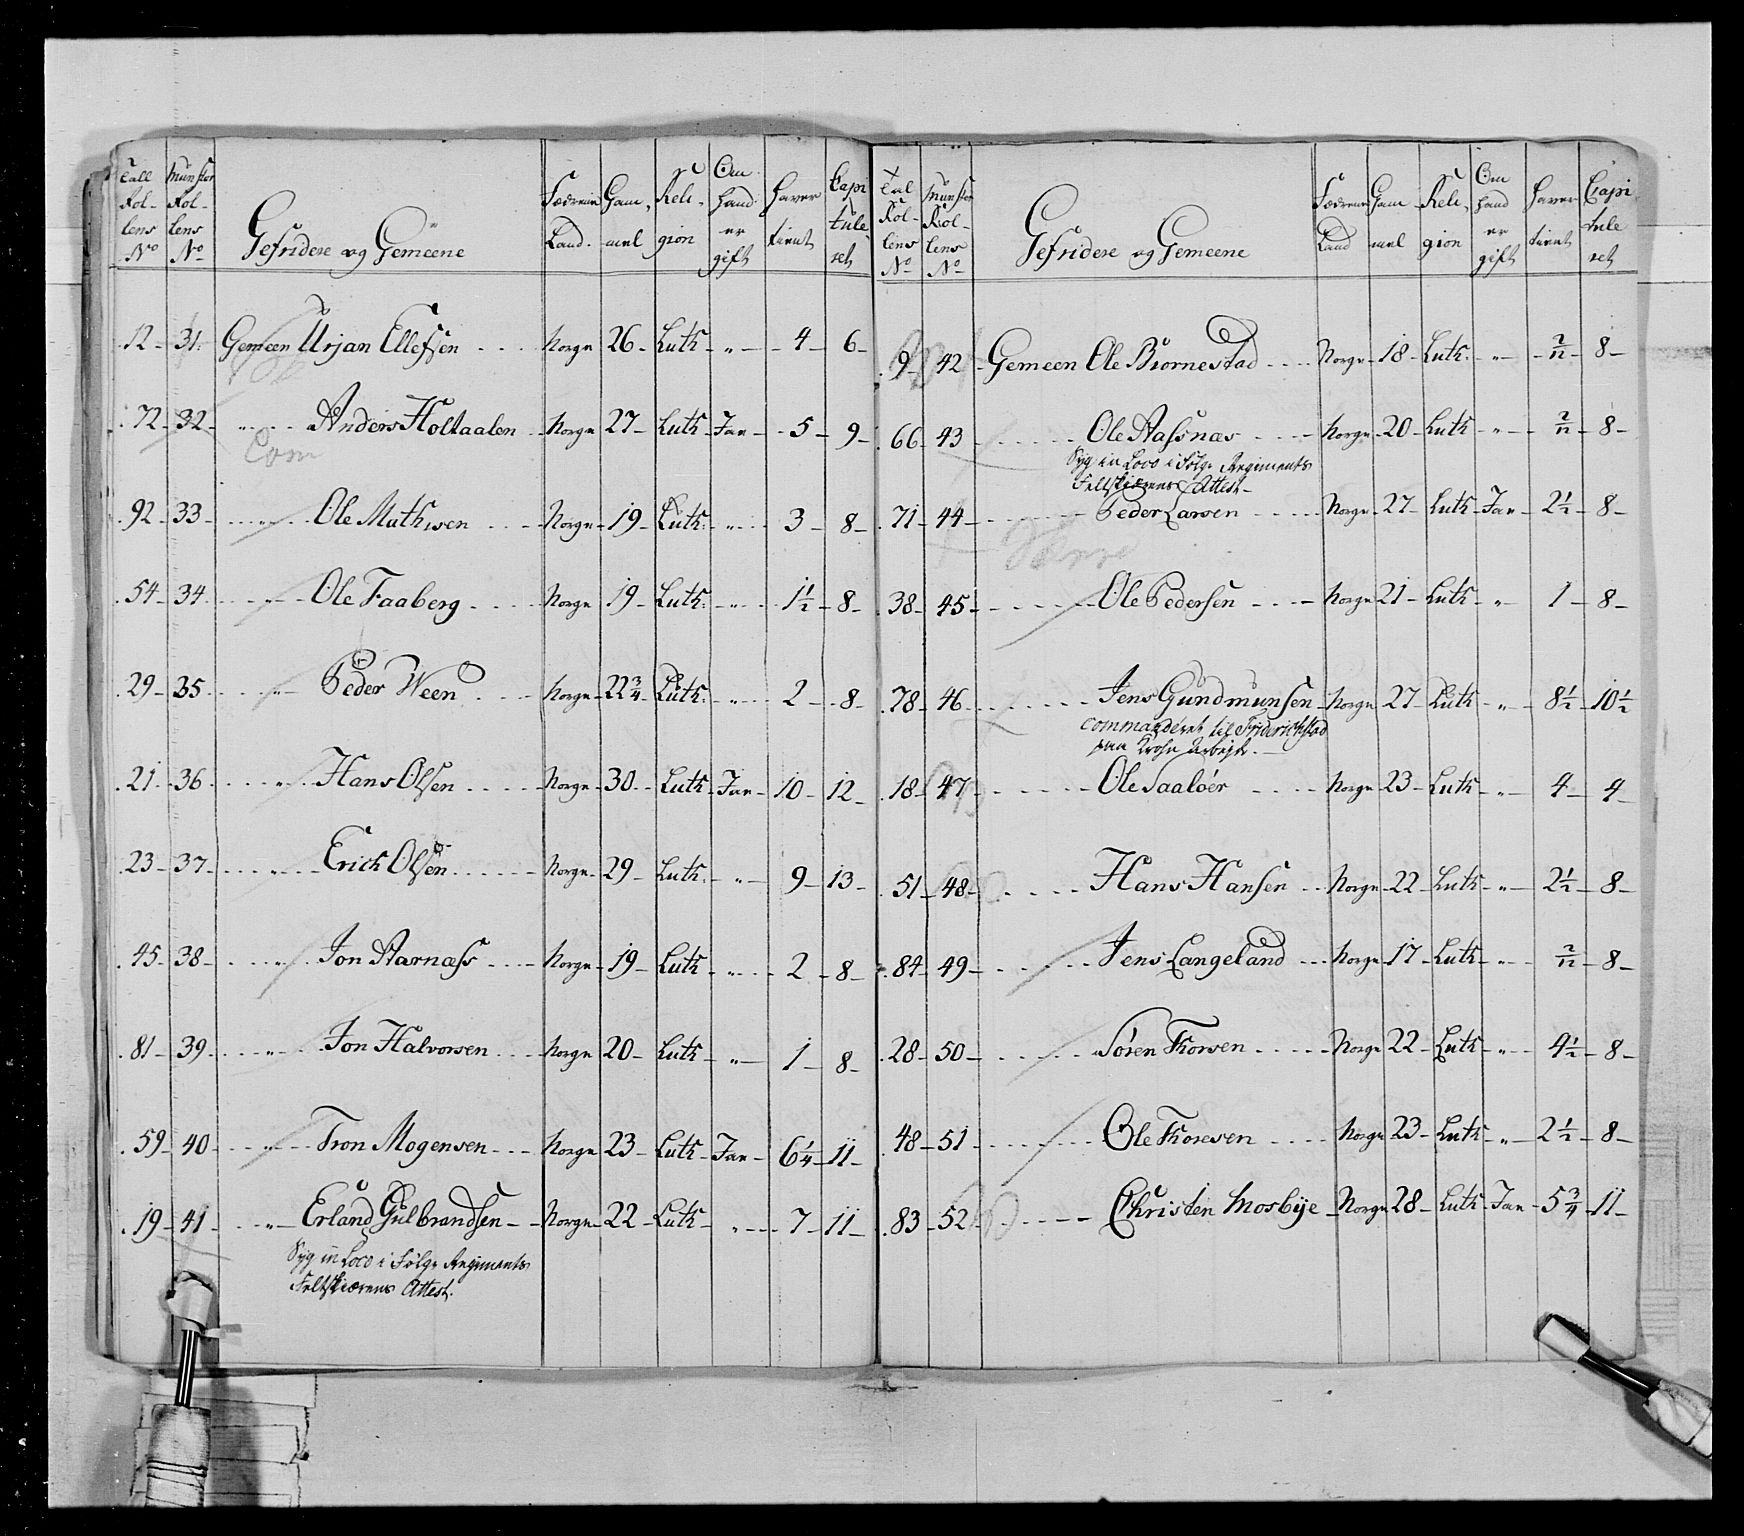 Tall Rol- lens No | Munster Rol- lens No | Gefridere og Gemeene | Fæderne Land. | Gam, mel | Reli- gion | Om hand er gift | haver tient | Capi tule ret
12 - 31. Gemeen Urjan Ellefsen Norge 26 - Luth - " - 4 - 6 -
72 - 32 " Anders Holtaalen Norge 27 - Luth Jae - 5 - 9 -
Com
92 - 33 - " Ole Mathisen Norge - 19 - Luth: " 3 - 8 -
54 - 34 " Ole Faaberg Norge 19 - Luth: " 1½ - 8 -
29 - 35 " Peder Ween Norge - 22¾ Luth: " 2 - 8 -
21 - 36 " Hans Olsen Norge 30 - Luth - Jae - 10 - 12 -
23 - 37 - " Erich Olsen Norge 29 - Luth. - " - 9 - 13 -
45 - 38 - " Jon Aarnæss Norge - 19 - Luth - " - 2 - 8 -
81 - 39 " Jon Halvorsen Norge 20 - Luth - " - 1 - 8 -
59 - 40 - " Tron Mogensen Norge 23 - Luth - Jae - 6¼ - 11 -
19 - 41 - " Erland Gulbrandsen - Norge - 22 - Luth - " - 7 - 11 -
Syg in Loco i Følge Regiments
Feltskiærens Attest.
Tal Rol- lens No | Munster Rol- lens No | Gefridere og Gemeene | Fæderne Land | Gam mel | Reli- gion | Om hand er gift | haver tient | Capi tule ret
9 - 42 - Gemeen Ole Biørnestad Norge - 18 - Luth: - " - 2/12 - 8 -
66 - 43 Ole Aassnæs Norge - 20 - Luth - " - 2/12 - 8 -
Syg in Loco i Følge Regiments
Feltskiærens Attest -
71 - 44 - Peder Larsen Norge - 27 - Luth - Jae - 2½ - 8 -
38 - 45 - Ole Pedersen Norge 21 - Luth - " - 1 - 8 -
78 - 46 Jens Gundmunsen - Norge - 27 - Luth - " - 8½ - 10½
commanderet til Friderichstad
paa Krohn Arbejde. -
18 - 47 Ole Saaløer Norge - 23 - Luth - " - 4 - 4 -
51 - 48 - Hans Hansen Norge - 22 - Luth - " - 2½ - 8 -
84 - 49 - Jens Langeland Norge - 17 - Luth - " - 2/12 - 8 -
28 - 50 - Sören Thorsen Norge - 22 - Luth - " - 4½ - 8 -
48 - 51 - Ole Thoresen Norge - 23 - Luth - " - 2½ - 8 -
83 - 52 - Christen Mosbÿe - Norge - 28 - Luth - Jae - 5¾ - 11 -